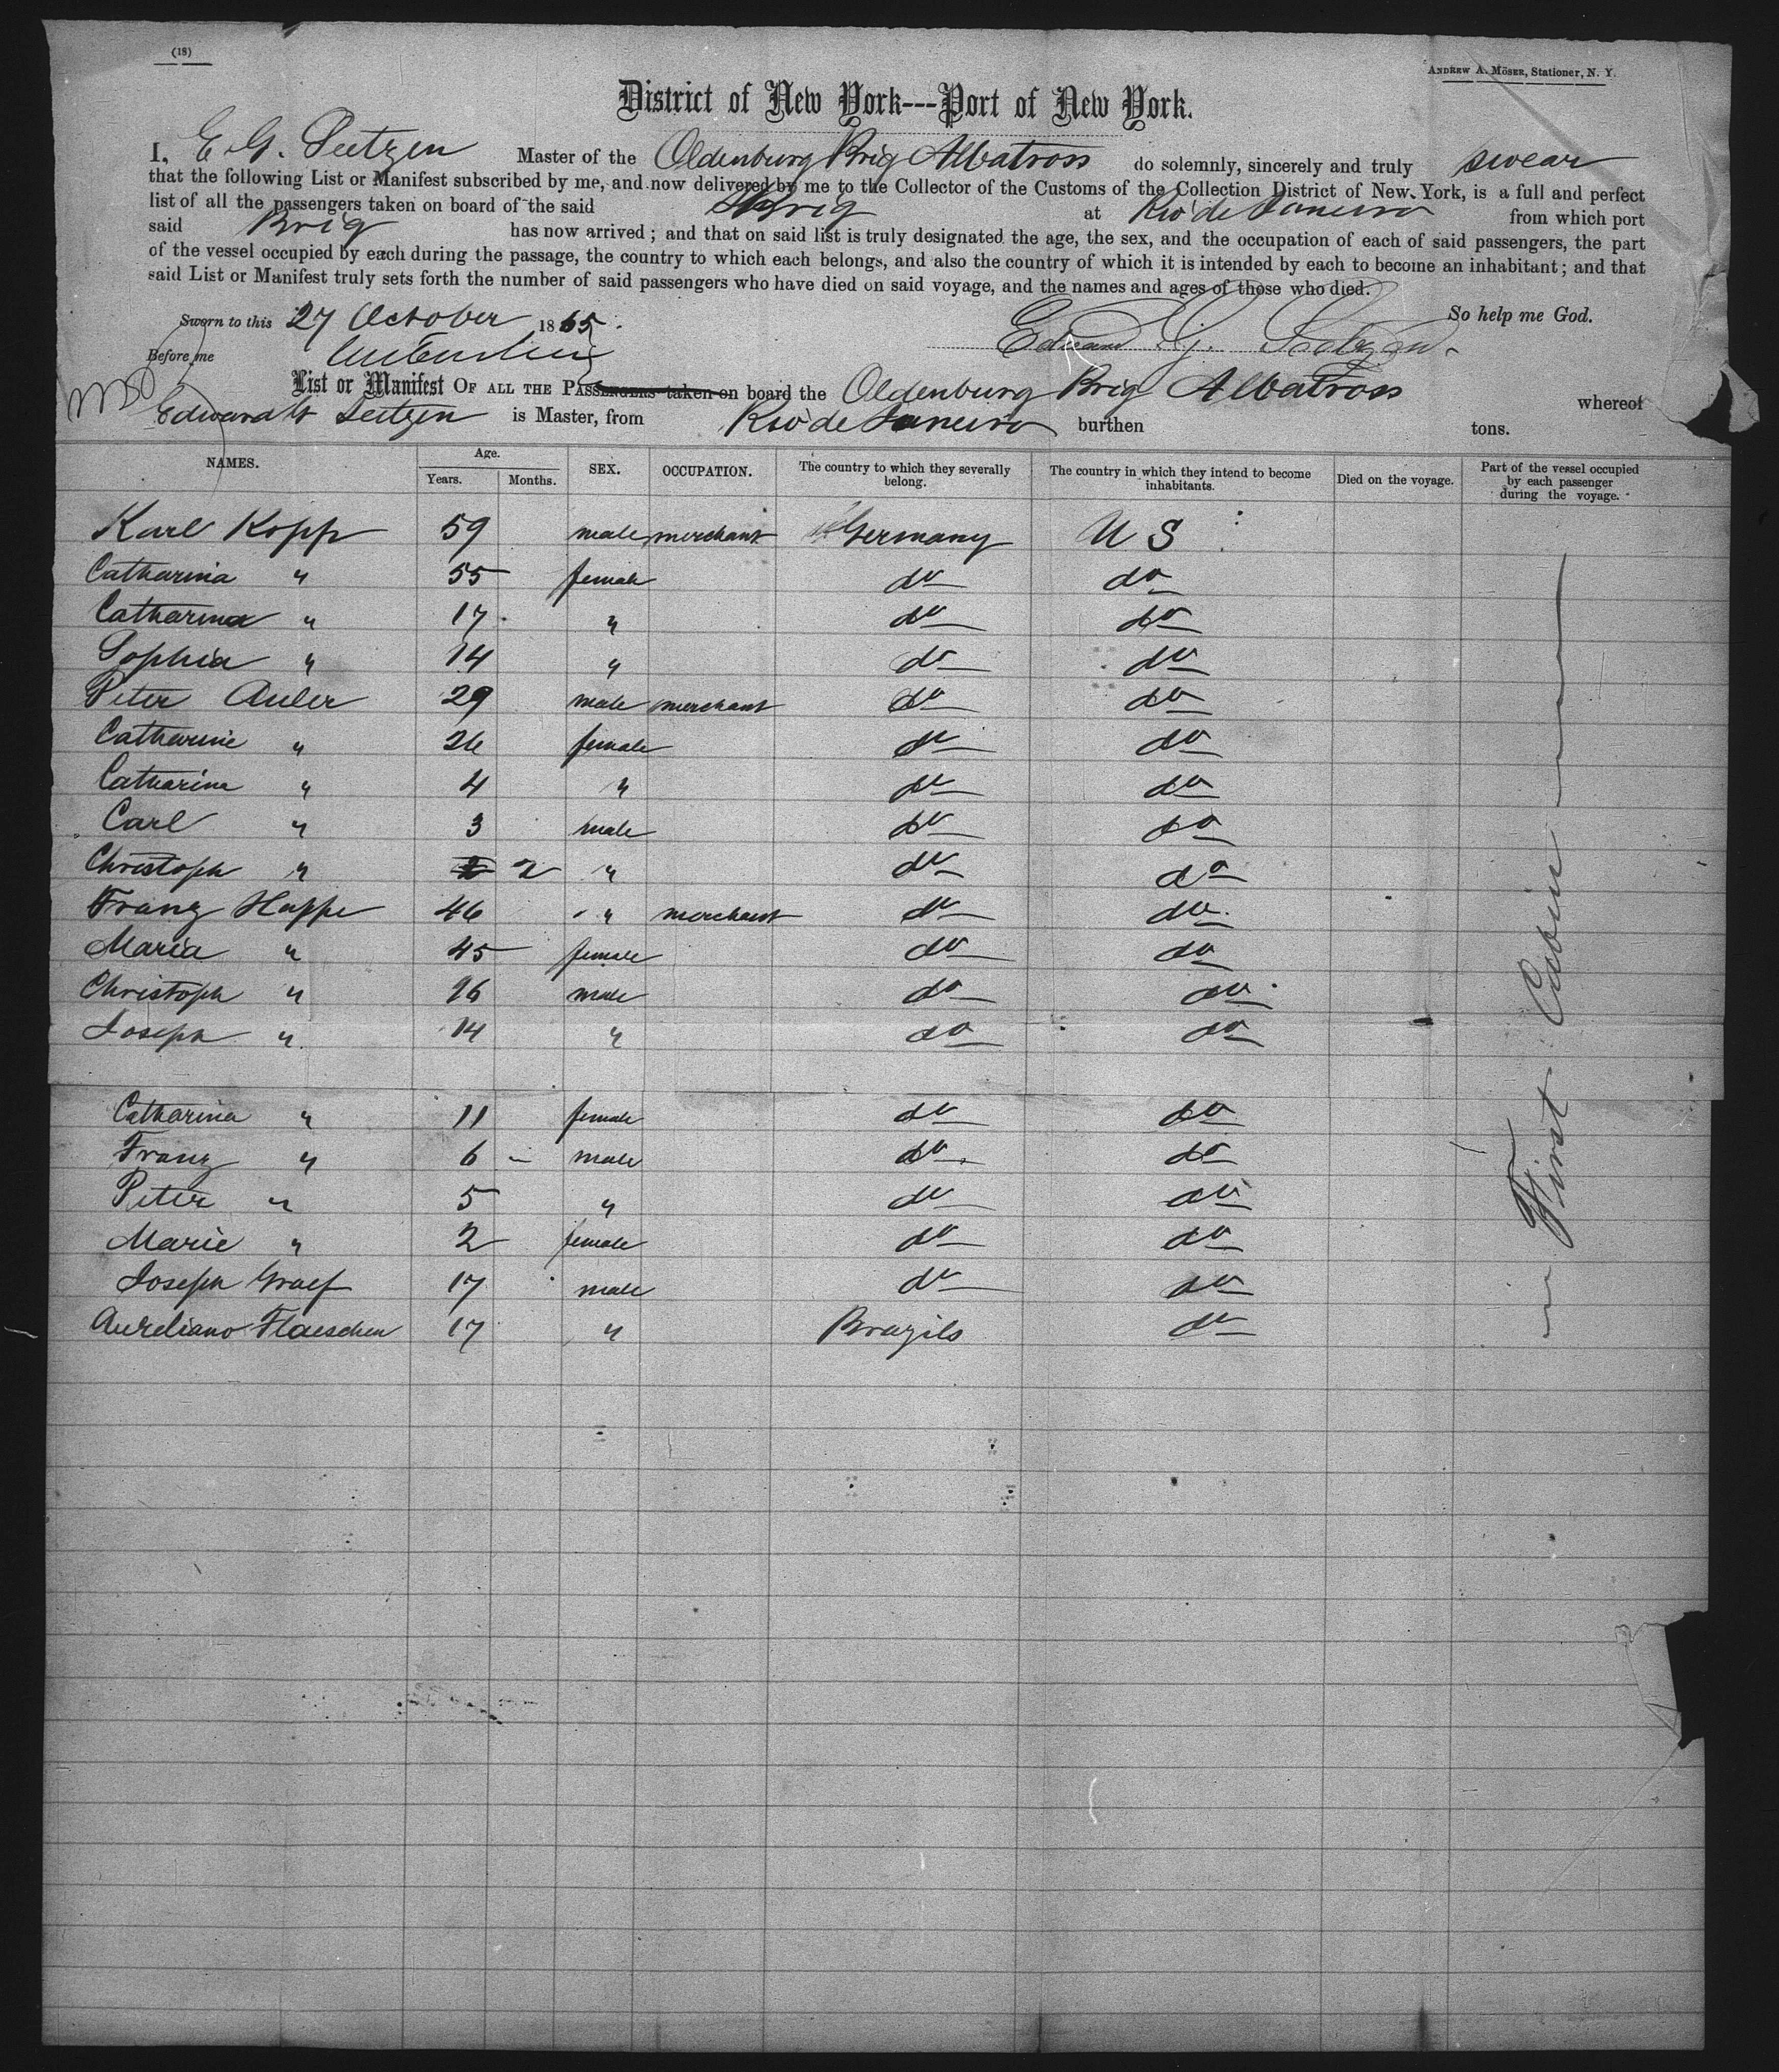 (18)
ANDREW A. MÖSER, Stationer, N. Y.
District of New York---Port of New York.
I, E. G. Seetzen Master of the Oldenburg Brig Albatross do solemnly, sincerely and truly swear
that the following List or Manifest subscribed by me, and now delivered by me to the Collector of the Customs of the Collection District of New York, is a full and perfect
list of all the passengers taken on board of the said Brig at Rio de Janeiro from which port
said Brig has now arrived; and that on said list is truly designated the age, the sex, and the occupation of each of said passengers, the part
of the vessel occupied by each during the passage, the country to which each belongs, and also the country of which it is intended by each to become an inhabitant; and that
said List or Manifest truly sets forth the number of said passengers who have died on said voyage, and the names and ages of those who died.
So help me God.
Sworn to this 27 October 1865.
Before me
Edward G. Seetzen.
List or Manifest OF ALL THE PASSENGERS taken on board the Oldenburg Brig Albatross whereof
Edward G Seetzen is Master, from Rio de Janeiro burthen tons.
NAMES. Age. Years. Months. SEX. OCCUPATION. The country to which they severally belong. The country in which they intend to become inhabitants. Died on the voyage. Part of the vessel occupied by each passenger during the voyage.
Karl Kopp 59 male merchant Germany U S
Catharina " 55 female do do
Catharina " 17 " do do
Sophia " 14 " do do
Peter Auler 29 male merchant do do
Catharine " 26 female do do
Catharine " 4 " do do
Carl " 3 male do do
Christoph " 2 " do do
Franz Happe 46 " merchant do do
Maria " 45 female do do
Christoph " 16 male do do
Joseph " 14 " do do
Catharina " 11 female do do
Franz " 6 - male do do
Peter " 5 " do do
Marie " 2 female do do
Joseph Graef 17 male do do
Aureliano Flaeschen 17 " Brazils do
in First Cabin